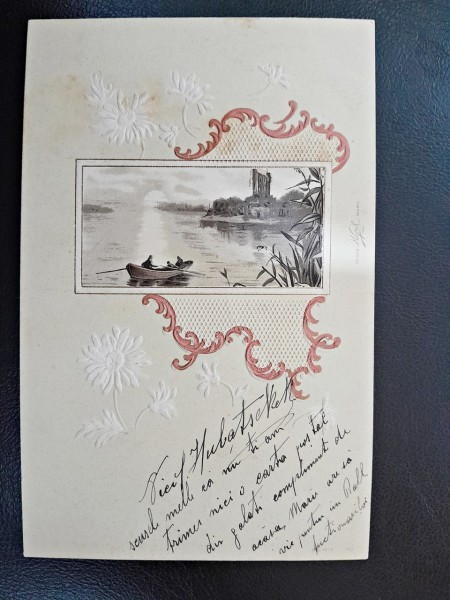 Hubatschek
scuse mele ca nu ti am
trimes nici o carta postal
din galati compliment de
acasa, Marie are sa
vie pentru un Ball
functionarilor